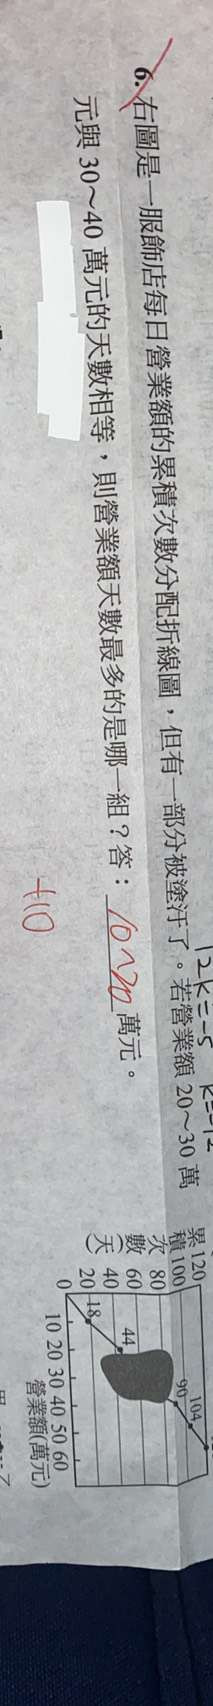 12k=-5 k=-12
6. 右圖是一服飾店每日營業額的累積次數分配折線圖，但有一部分被塗汙了。若營業額 20～30 萬
元與 30～40 萬元的天數相等，則營業額天數最多的是哪一組？答：10~20萬元。
+10
累積次數(天)
120
100
80
60
40
20
0
18
44
90
104
10 20 30 40 50 60
營業額(萬元)